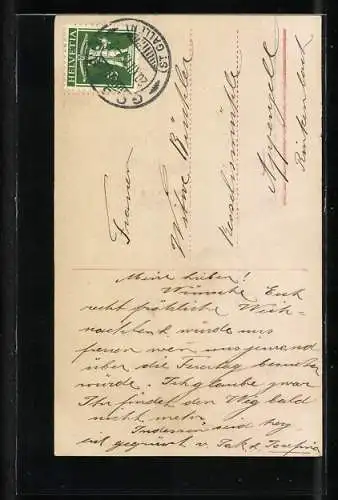 HELVETIA
(ST. GALLEN)
Frauen
Witwe Büchler
Appenzell
Meine Lieben!
Wünsche Euch
recht fröhliche Weih-
nachten & würde uns
freuen wenn uns jemand
über die Feiertag besuchen
würde. Ich glaube zwar
Ihr findet den Weg bald
nicht mehr.
Indessen seid herz.
gegrüsst v. Jak & Josefina